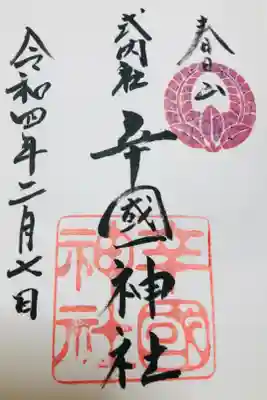 春日山
式内社
辛國神社
辛國神社
令和四年二月七日